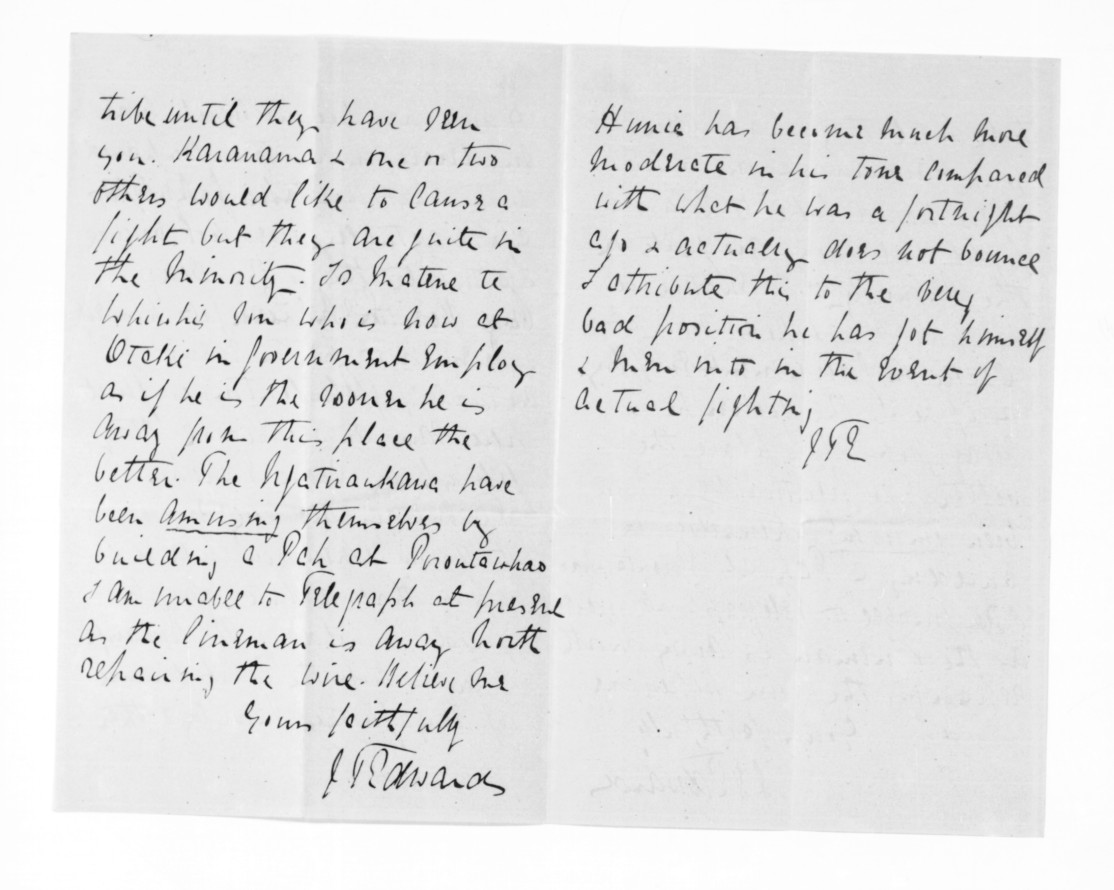 tribe until they have seen
you. Karanama & one or two
others would like to cause a
fight but they are quite in
the minority. Is Matene te
Whiwhi's son who is now at
Otaki in Government employ
as if he is the sooner he is
away from this place the
better. The Ngatiraukawa have
been amusing themselves by
building a Pah at Poroutawhao
I am unable to Telegraph at present
as the lineman is away north
repairing the wire. Believe me
Yours faithfully
J T Edwards
Hunia has become much more
moderate in his tone compared
with what he was a fortnight
ago & actually does not bounce
I attribute this to the very
bad position he has got himself
& men into in the event of
actual fighting
J T E